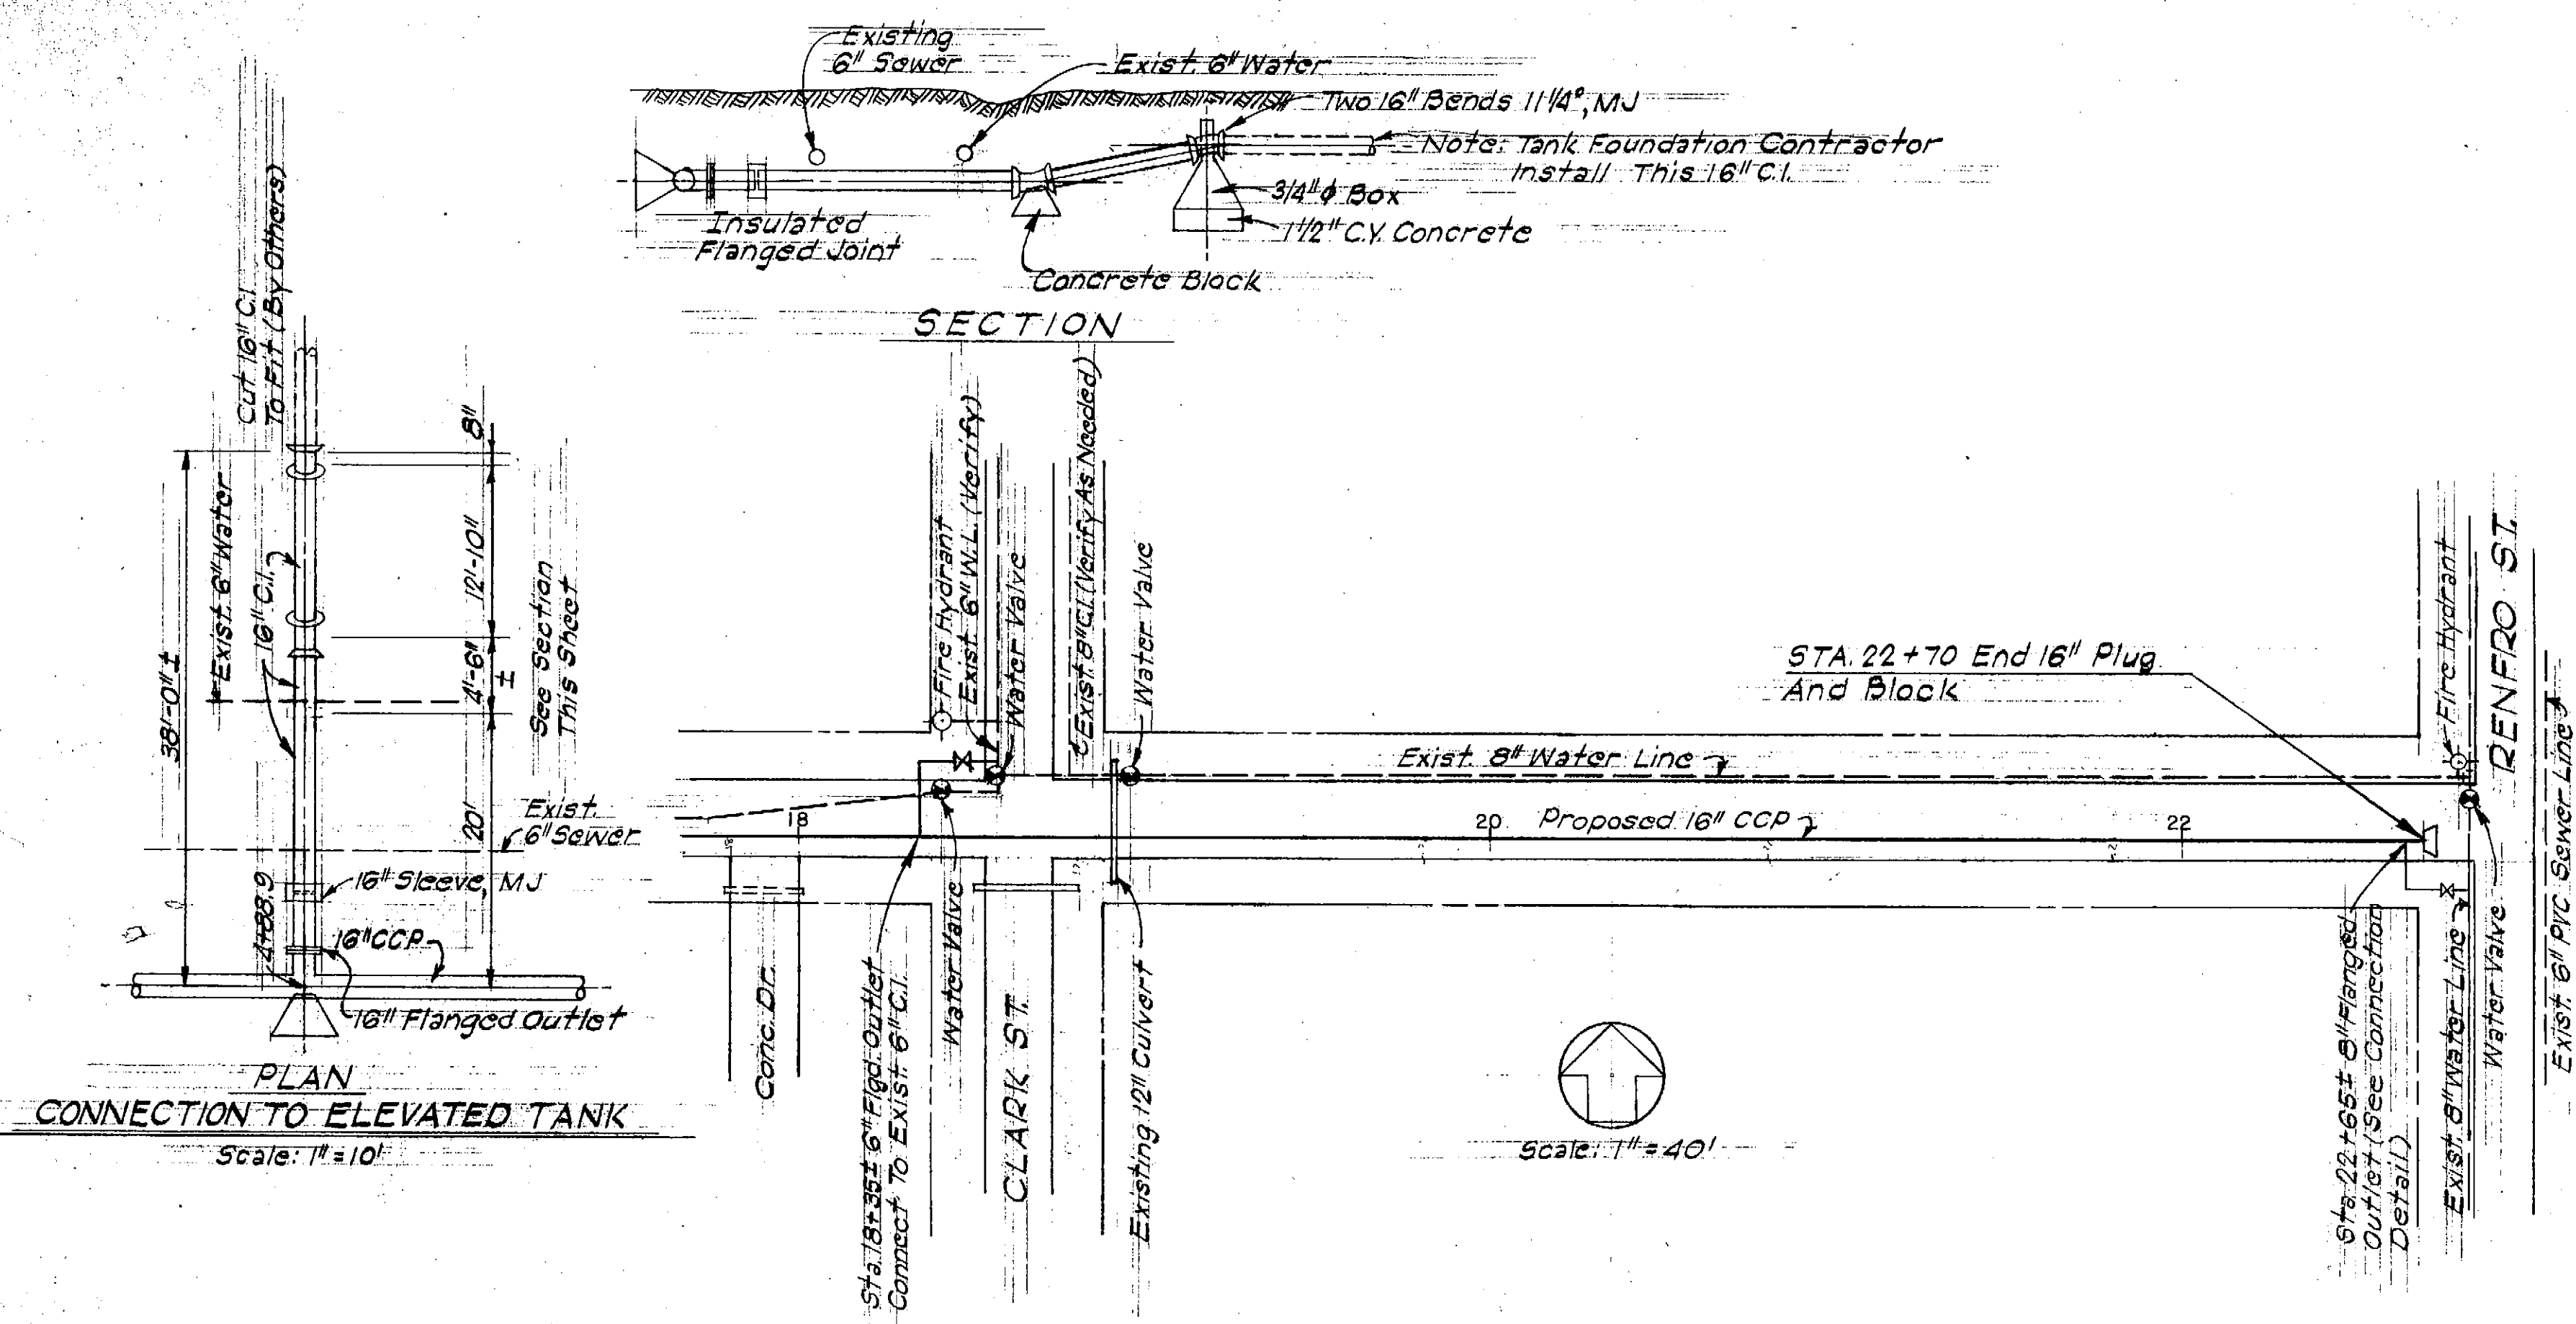 Existing
6" Sewer
Exist. 6" Water
Two 16" Bends 11 1/4°, MJ
Note: Tank Foundation Contractor
Install This 16" C.I.
3/4" ϕ Box
1 1/2" C.Y. Concrete
Insulated
Flanged Joint
Concrete Block
SECTION
Cut 16" C.I.
To Fit (By Others)
8"
Exist. 6" Water
16" C.I.
12'-10"
38'-0" ±
4'-6"
±
See Section
This Sheet
20'
Exist.
6" Sewer
16" Sleeve, MJ
4+88.9
16" CCP
16" Flanged Outlet
PLAN
CONNECTION TO ELEVATED TANK
Scale: 1" = 10'
Fire Hydrant
Exist. 6" W.L. (Verify)
Water Valve
Exist. 8" C.I. (Verify As Needed)
Water Valve
STA. 22+70 End 16" Plug
And Block
Fire Hydrant
RENFRO ST.
Exist. 8" Water Line
18
20
Proposed 16" CCP
22
Conc. Dr.
Sta. 18+35± 6" Flgd. Outlet
Connect To Exist. 6" C.I.
Water Valve
CLARK ST.
Existing 12" Culvert
Scale: 1" = 40'
Sta. 22+65± 8" Flanged
Outlet (See Connection
Detail)
Exist. 8" Water Line
Water Valve
Exist. 6" PVC Sewer Line